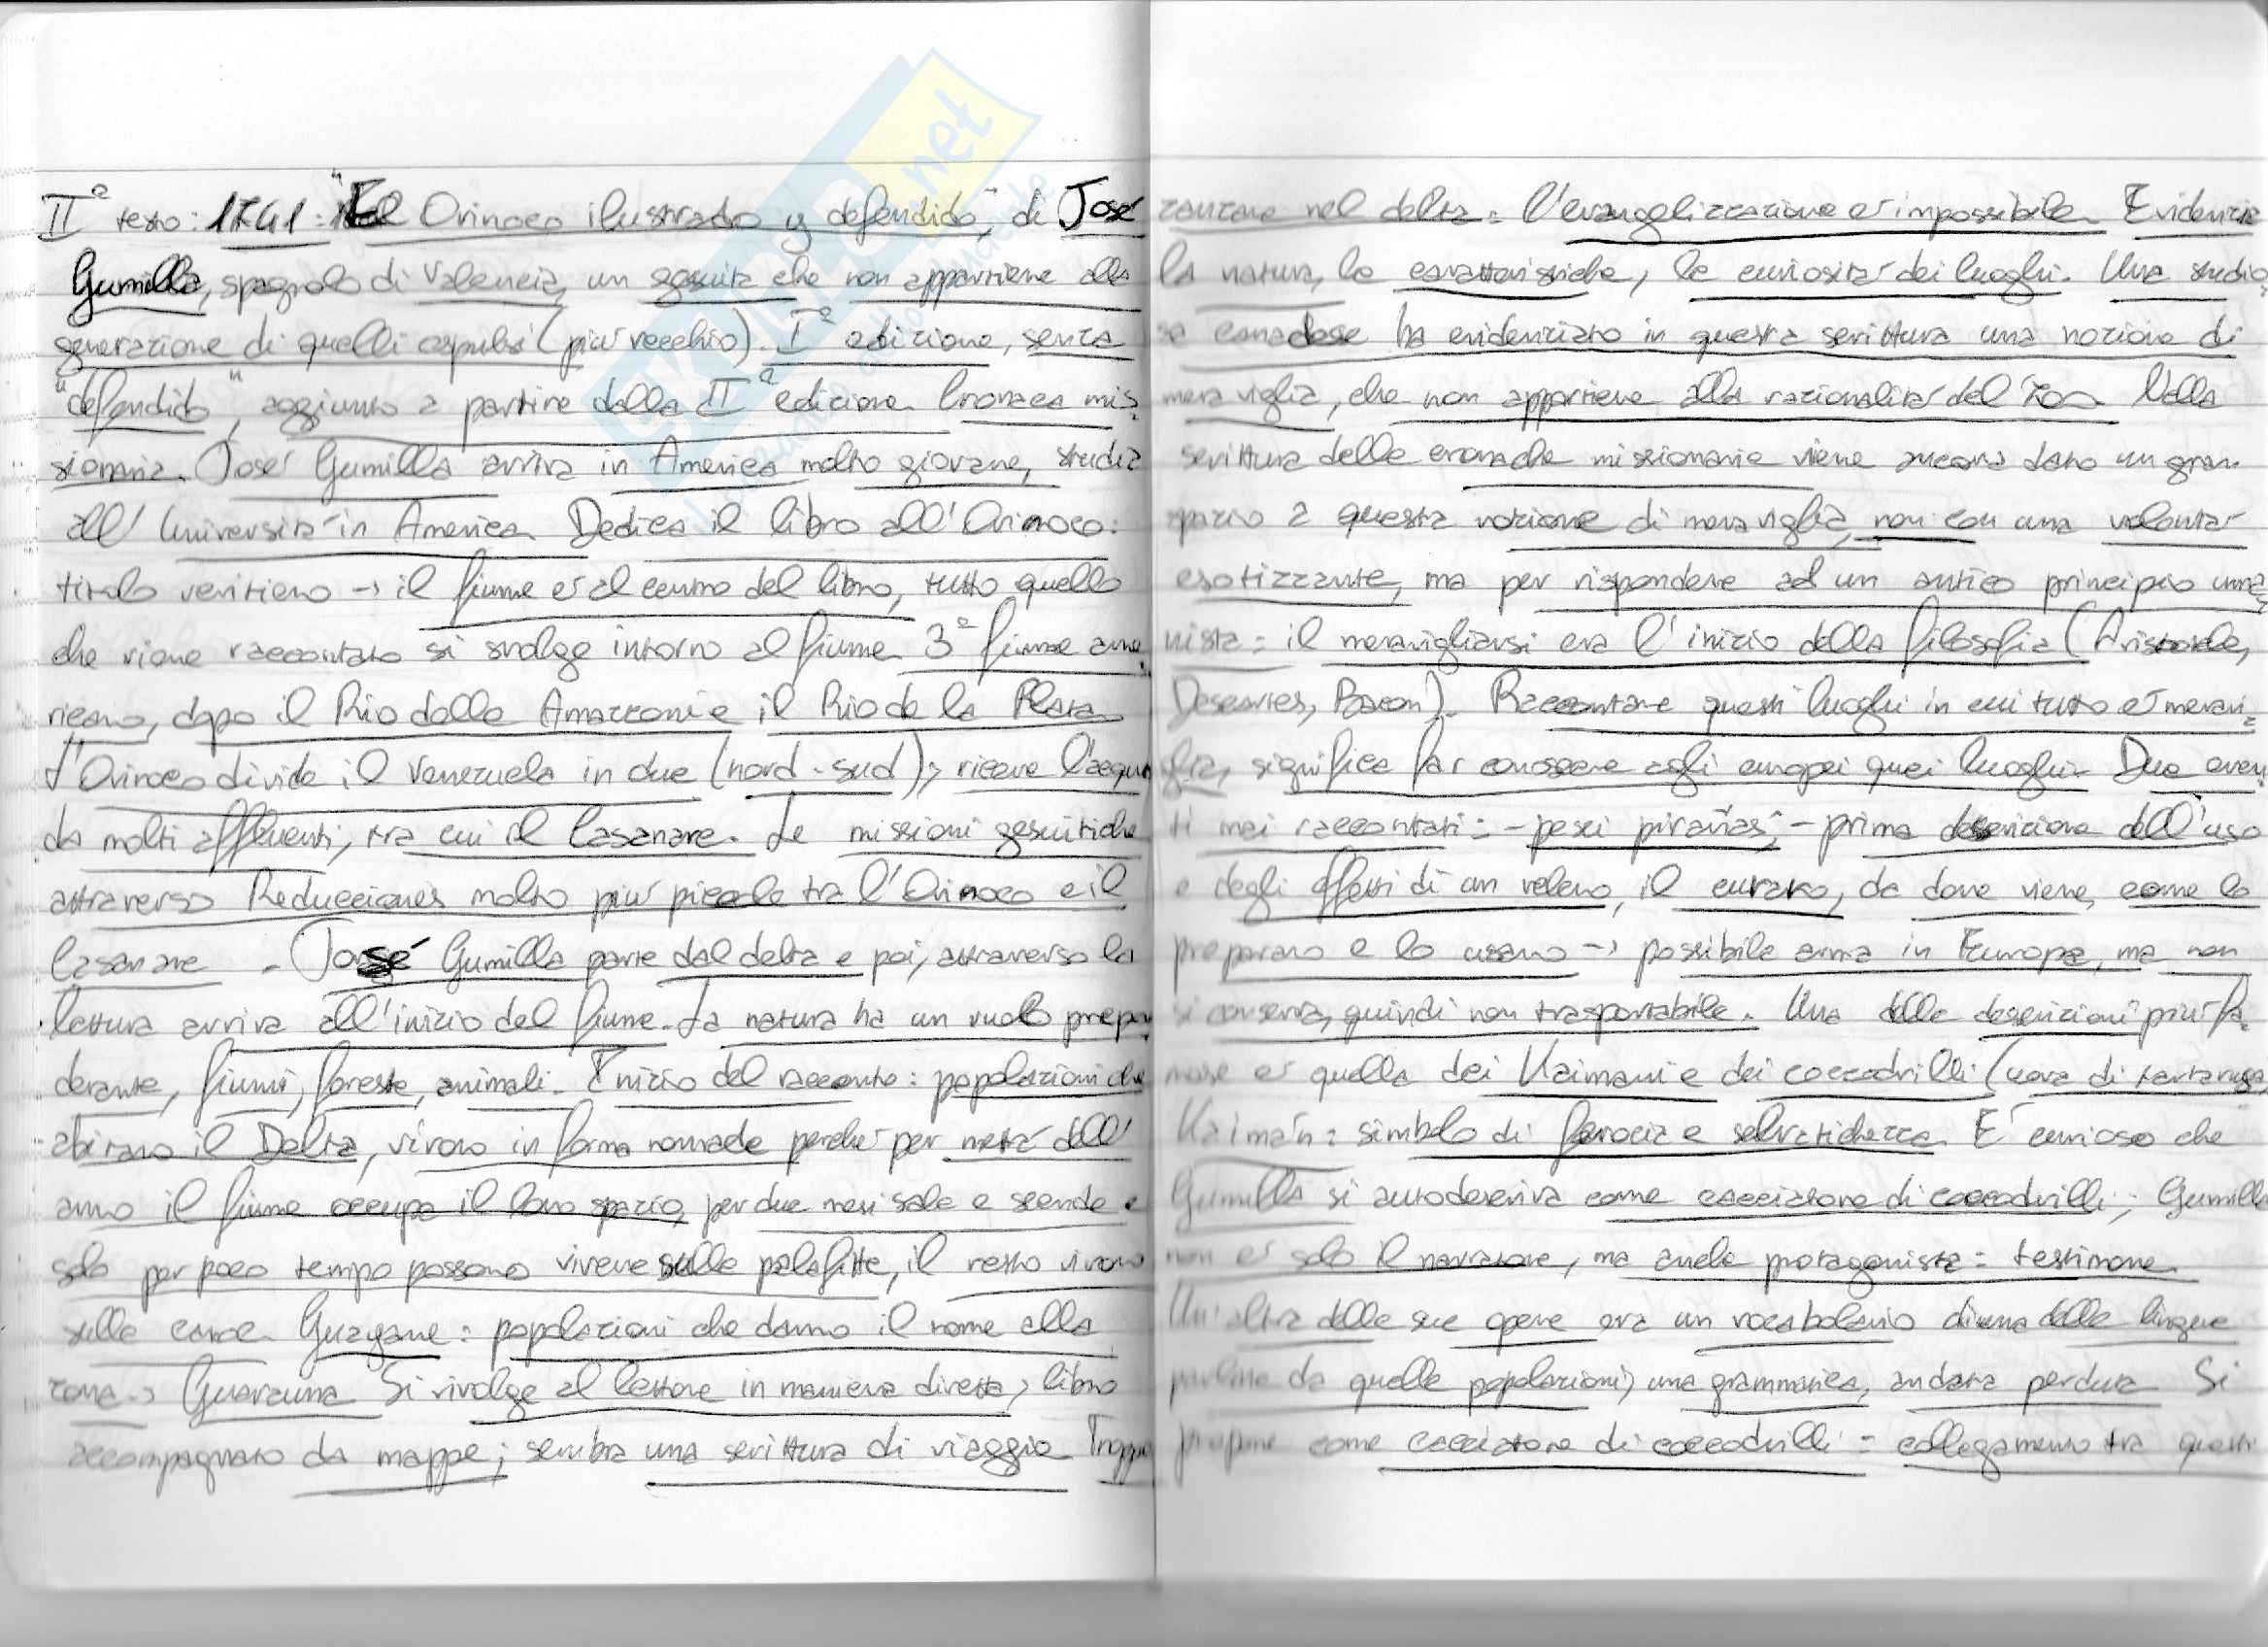 IIº testo: 1741: "El Orinoco ilustrado y defendido", di José
Gumilla, spagnolo di Valencia, un gesuita che non appartiene alla
generazione di quelli espulsi (più vecchio). Iª edizione, senza
"defendido", aggiunto a partire dalla IIª edizione. Cronaca mis
sionaria. José Gumilla arriva in America molto giovane, studia
all'Università in America. Dedica il libro all'Orinoco:
titolo veritiero → il fiume è al centro del libro, tutto quello
che viene raccontato si svolge intorno al fiume. 3º fiume ame
ricano, dopo il Rio delle Amazzoni e il Rio de la Plata.
L'Orinoco divide il Venezuela in due (nord-sud); riceve l'acqua
da molti affluenti, tra cui il Casanare. Le missioni gesuitiche
attraverso Reducciones molto più piccole tra l'Orinoco e il
Casanare. José Gumilla parte dal delta e poi, attraverso la
lettura arriva all'inizio del fiume. La natura ha un ruolo prepon
derante, fiumi, foreste, animali. Inizio del racconto: popolazioni che
abitano il Delta, vivono in forma nomade perché per metà dell'
anno il fiume occupa il loro spazio, per due mesi sale e scende e
solo per poco tempo possono vivere sulle palafitte, il resto vivono
sulle canoe. Guayane: popolazioni che danno il nome alla
zona → Guarauna. Si rivolge al lettore in maniera diretta, libro
accompagnato da mappe; sembra una scrittura di viaggio. Troppe
zanzare nel delta: l'evangelizzazione è impossibile. Evidenzia
la natura, le caratteristiche, le curiosità dei luoghi. Una studio
sa canadese ha evidenziato in questa scrittura una nozione di
meraviglia, che non appartiene alla razionalità del '700. Nella
scrittura delle cronache missionarie viene ancora dato un gran
spazio a questa nozione di meraviglia, non con una volontà
esotizzante, ma per rispondere ad un antico principio uma
nista: il meravigliarsi era l'inizio della filosofia (Aristotele,
Descartes, Bacon). Raccontare questi luoghi in cui tutto è meravi
glia, significa far conoscere agli europei quei luoghi. Due even
ti mai raccontati: - pesci pirañas; - prima descrizione dell'uso
e degli effetti di un veleno, il curaro, da dove viene, come lo
preparano e lo usano → possibile arma in Europa, ma non
si conserva, quindi non trasportabile. Una delle descrizioni più fa
mose è quella dei Kaimani e dei coccodrilli (uova di tartaruga
Kaimán: simbolo di ferocia e selvatichezza. È curioso che
Gumilla si autodescriva come cacciatore di coccodrilli; Gumilla
non è solo il narratore, ma anche protagonista: testimone.
Un'altra delle sue opere era un vocabolario di una delle lingue
parlate da quelle popolazioni, una grammatica, andata perduta. Si
propone come cacciatore di coccodrilli: collegamento tra questi